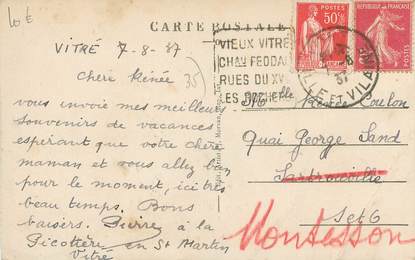 10 €
CARTE POSTALE
VITRÉ 7-8-37
VIEUX VITRE
CHAU FEODAL
RUES DU XV
LES ROCHERS
POSTES
50c
ILLE ET VILAINE
37
35
Chère Renée
vous envoie mes meilleurs
souvenirs de vacances
espérant que votre chère
maman et vous allez bien
pour le moment, ici très
beau temps. Bons
baisers.
à la
Picotière en St Martin
Vitré
Melle
de Coulon
Quai George Sand
Sartrouville
S et O
Montesson